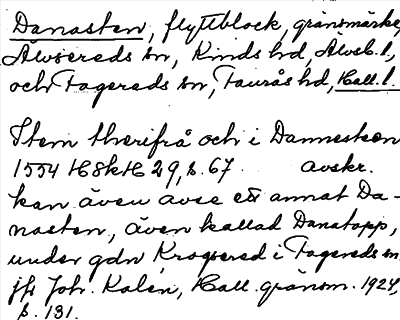 Danasten, flyttblock, gränsmärke,
Älvsereds sn, Kinds hd, Älvsb. l.,
och Fagereds sn, Faurås hd, Hall. l.
Item therifrå och i Dannesteen
1554 HSkH 29, s. 67. avskr.
kan även avse ett annat Da-
nasten, även kallad Danatopp,
under gdn Krogsered i Fagereds sn
jfr Joh. Kalén, Hall. gränsm. 1924,
s. 131.